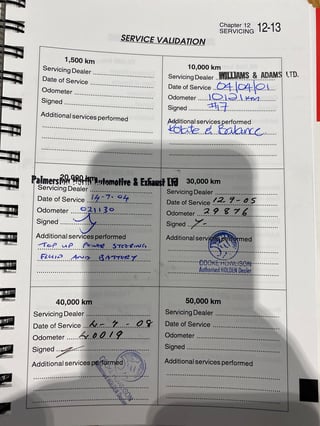 Chapter 12
SERVICING 12-13
SERVICE VALIDATION
1,500 km
Servicing Dealer
Date of Service
Odometer
Signed
Additional services performed
10,000 km
Servicing Dealer WILLIAMS & ADAMS LTD.
Date of Service 04/04/01
Odometer 10121 km
Signed
Additional services performed
Rotate & Balance
20,000 km
Palmerston Automotive & Exhaust Ltd
Servicing Dealer
Date of Service 14-7-04
Odometer 021130
Signed
Additional services performed
TOP UP POWER STEERING
FLUID AND BATTERY
30,000 km
Servicing Dealer
Date of Service 12.9-05
Odometer 29876
Signed
Additional services performed
COOKE HOWLISON
Authorised HOLDEN Dealer
40,000 km
Servicing Dealer
Date of Service 4-7-08
Odometer 40019
Signed
Additional services performed
50,000 km
Servicing Dealer
Date of Service
Odometer
Signed
Additional services performed